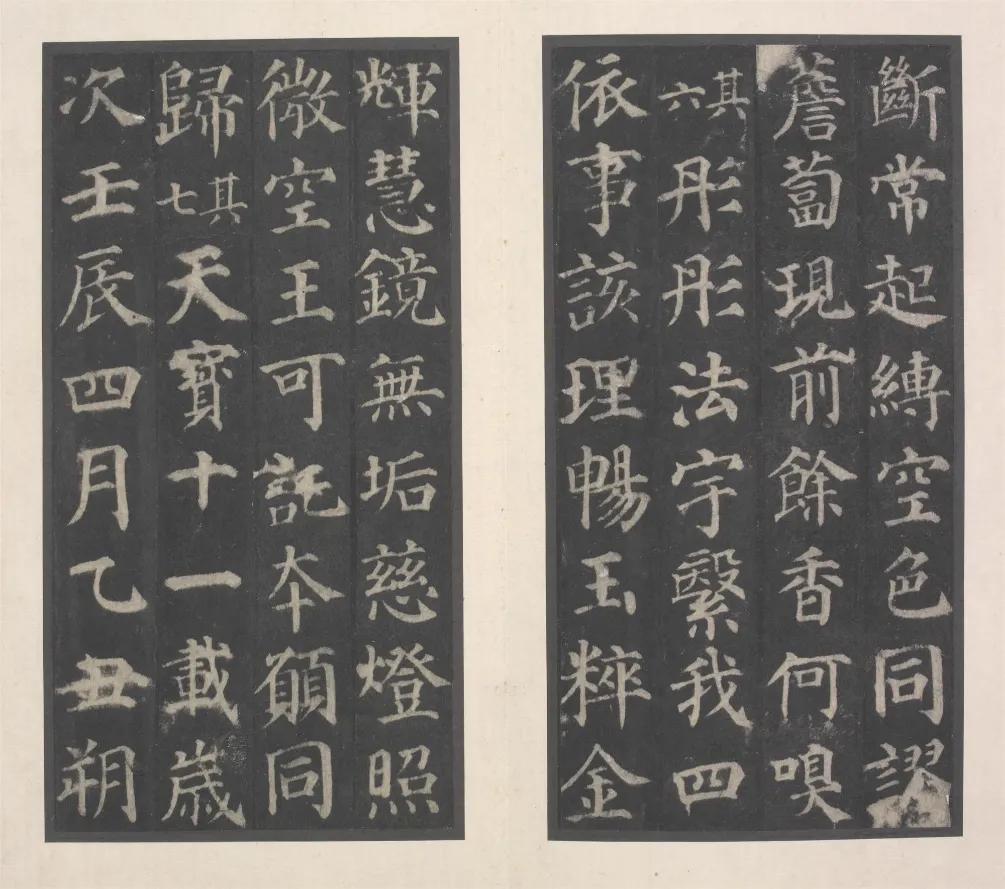 斷常起縛空色同謬
薝蔔現前餘香何嗅
其六彤彤法宇繫我四
依事該理暢玉粹金
輝慧鏡無垢慈燈照
微空王可託本願同
歸其七天寶十一載歲
次壬辰四月乙丑朔